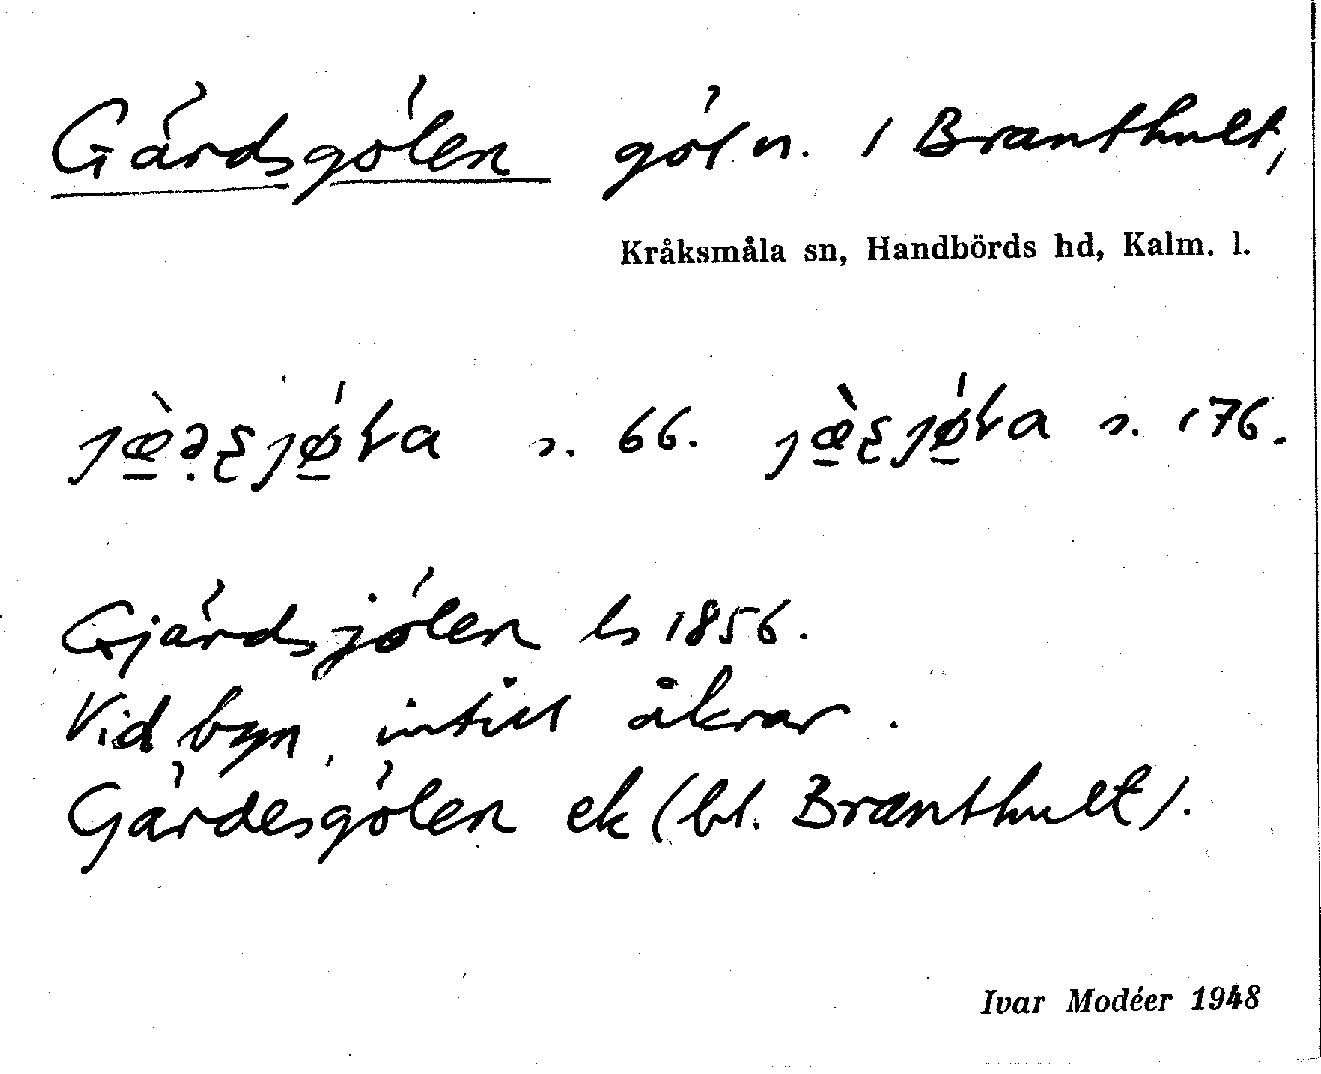 Gärdsgölen göl n. / Branthult,
Kråksmåla sn, Handbörds hd, Kalm. l.
s. 66. s. 176.
Gjärdsjölen ls 1856.
Vid byn, intill åkrar.
Gärdesgölen ek (bl. Branthult).
Ivar Modéer 1948